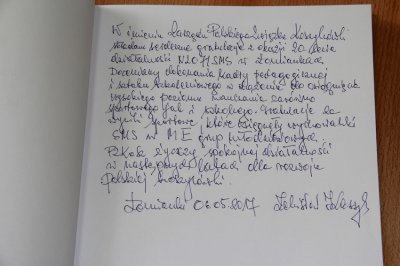 W imieniu Zarządu Polskiego Związku Koszykówki
składam serdeczne gratulacje z okazji 20-lecia
działalności NLO PZKosz SMS w Łomiankach.
Doceniamy dokonania kadry pedagogicznej
i sztabu szkoleniowego w dążeniu do osiągnięcia
wysokiego poziomu nauczania zarówno
sportowego jak i szkolnego. Gratulacje za
wyniki sportowe, które osiągnęły wychowanki
SMS w ME grup młodzieżowych.
Szkole życzę spokojnej działalności
w następnych latach dla rozwoju
polskiej koszykówki.
Łomianki 06.05.2017